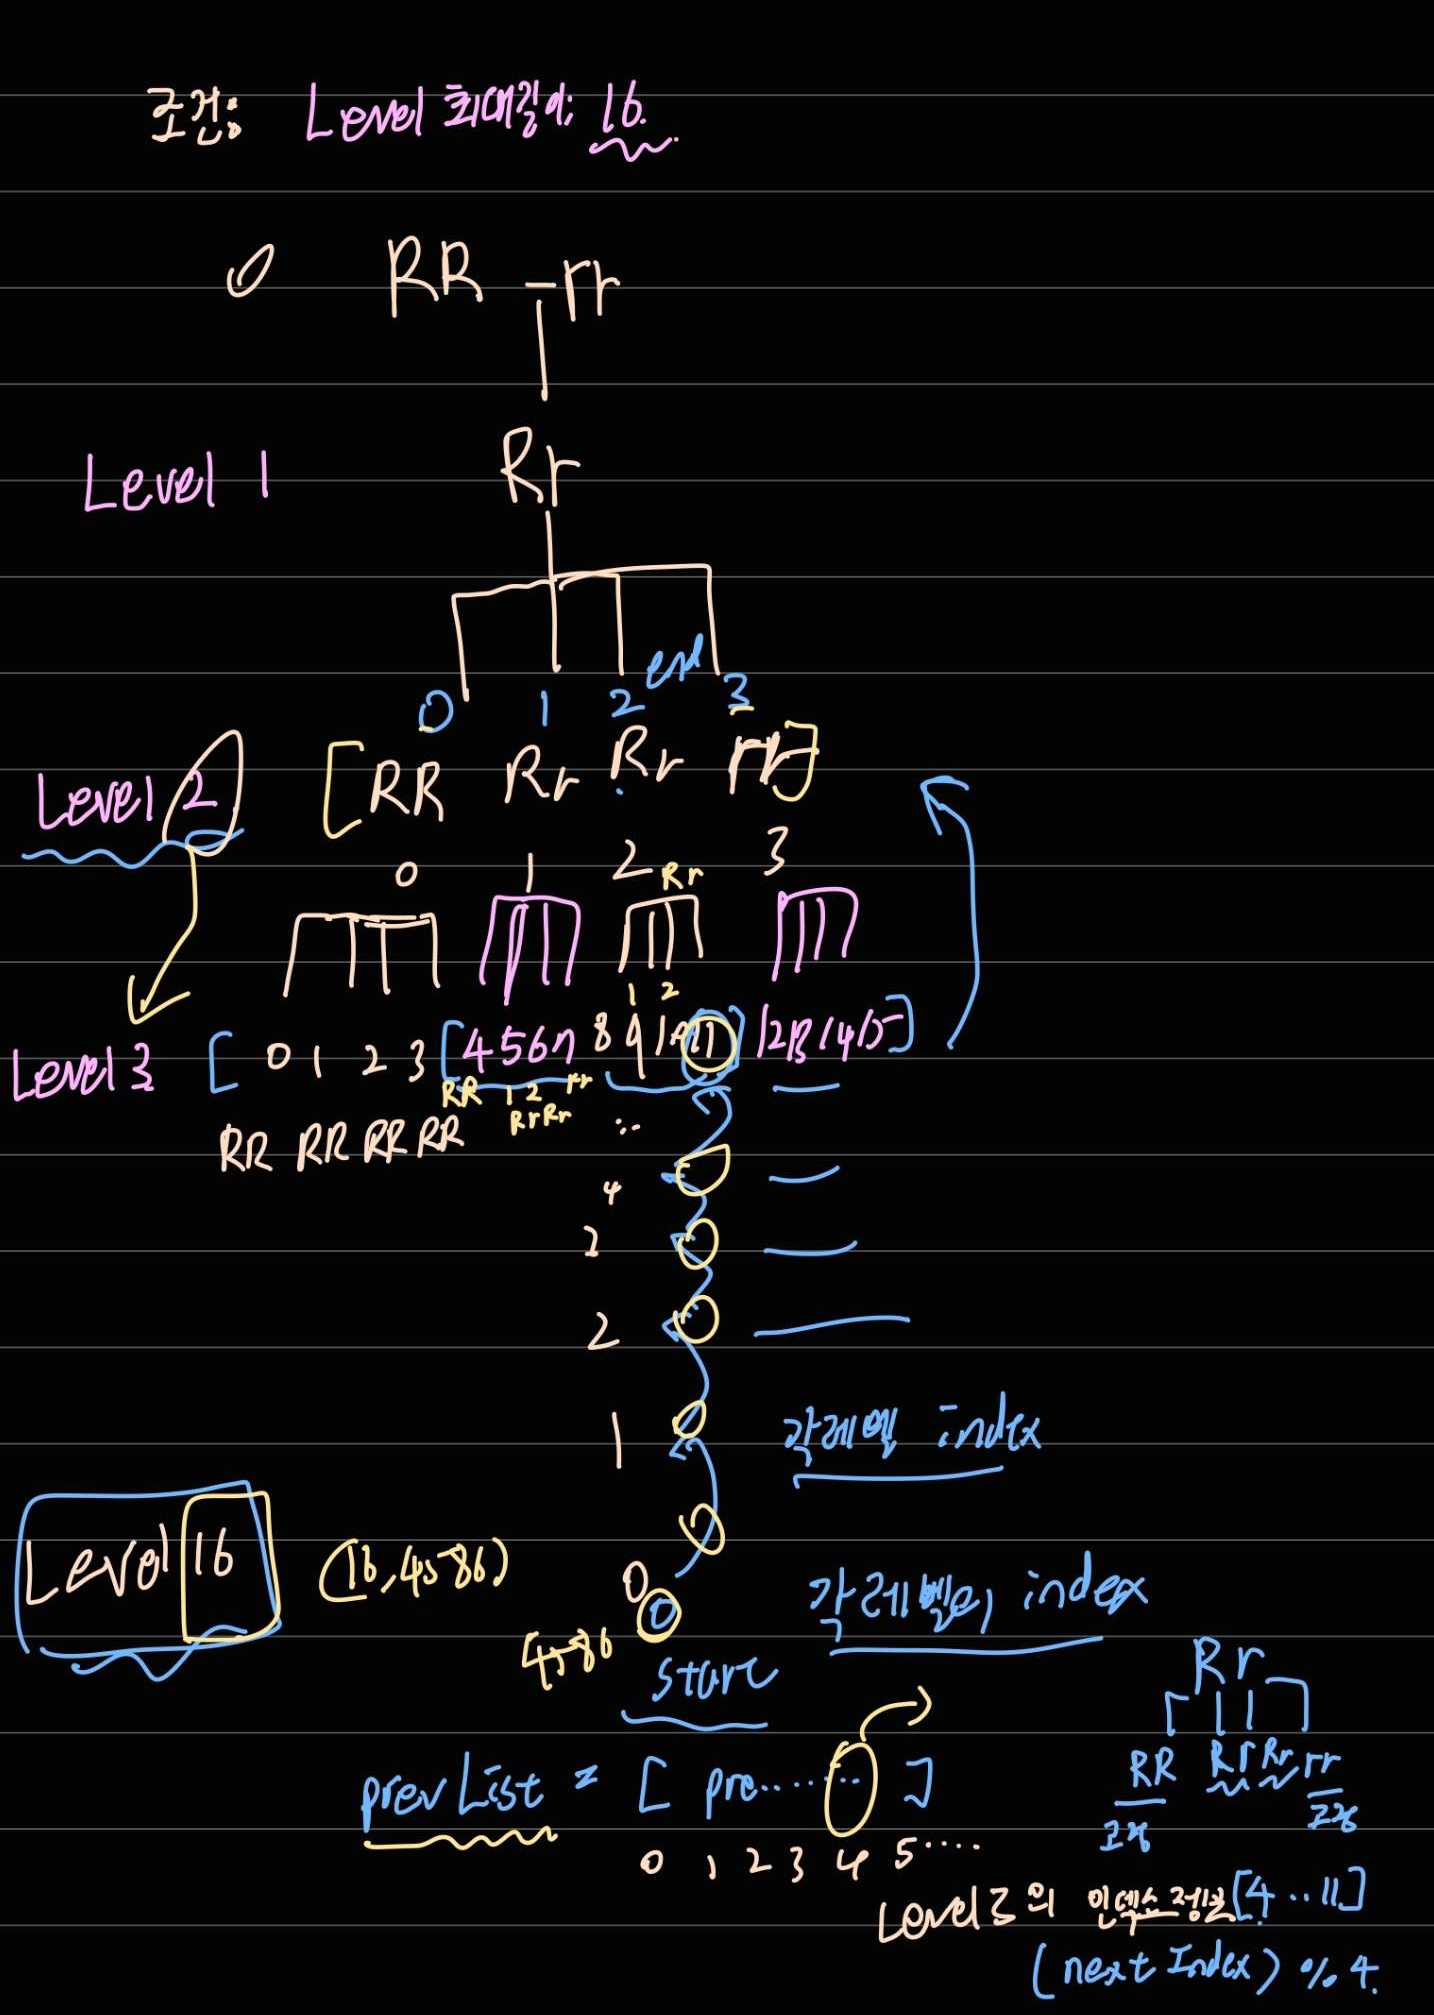 조건: Level 최대길이: 16.
RR - rr
Level 1 Rr
end
0 1 2 3
Level 2 [RR Rr Rr rr]
0 1 2 3
Rr
1 2
Level 3 [ 0 1 2 3 [4 5 6 7 8 9 10 11] 12 13 14 15]
RR 1 2 rr
Rr Rr
RR RR RR RR
4
3
2
1 각레벨 index
Level 16 (16, 4586) 0
0 각 레벨의 index
4586
start
Rr
prevList = [ pre....... ]
RR Rr Rr rr
고정 고정
0 1 2 3 4 5 ....
Level 3의 인덱스 정보 [4 .. 11]
(next Index) % 4.